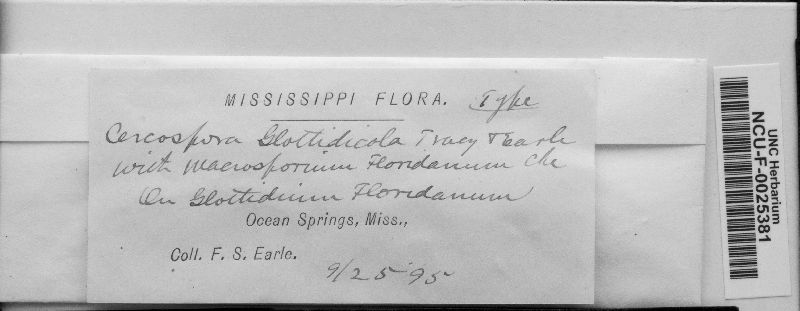 MISSISSIPPI FLORA. Type
Cercospora Glottidicola Tracy & Earle
with Macrosporium Floridanum Cke
On Glottidium Floridanum
Ocean Springs, Miss.,
Coll. F. S. Earle.
9/25 95
UNC Herbarium
NCU-F-0025381